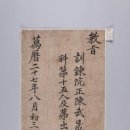 教旨
訓鍊院正陳武晟
科第十五人及第出
萬曆二十七年八月初三